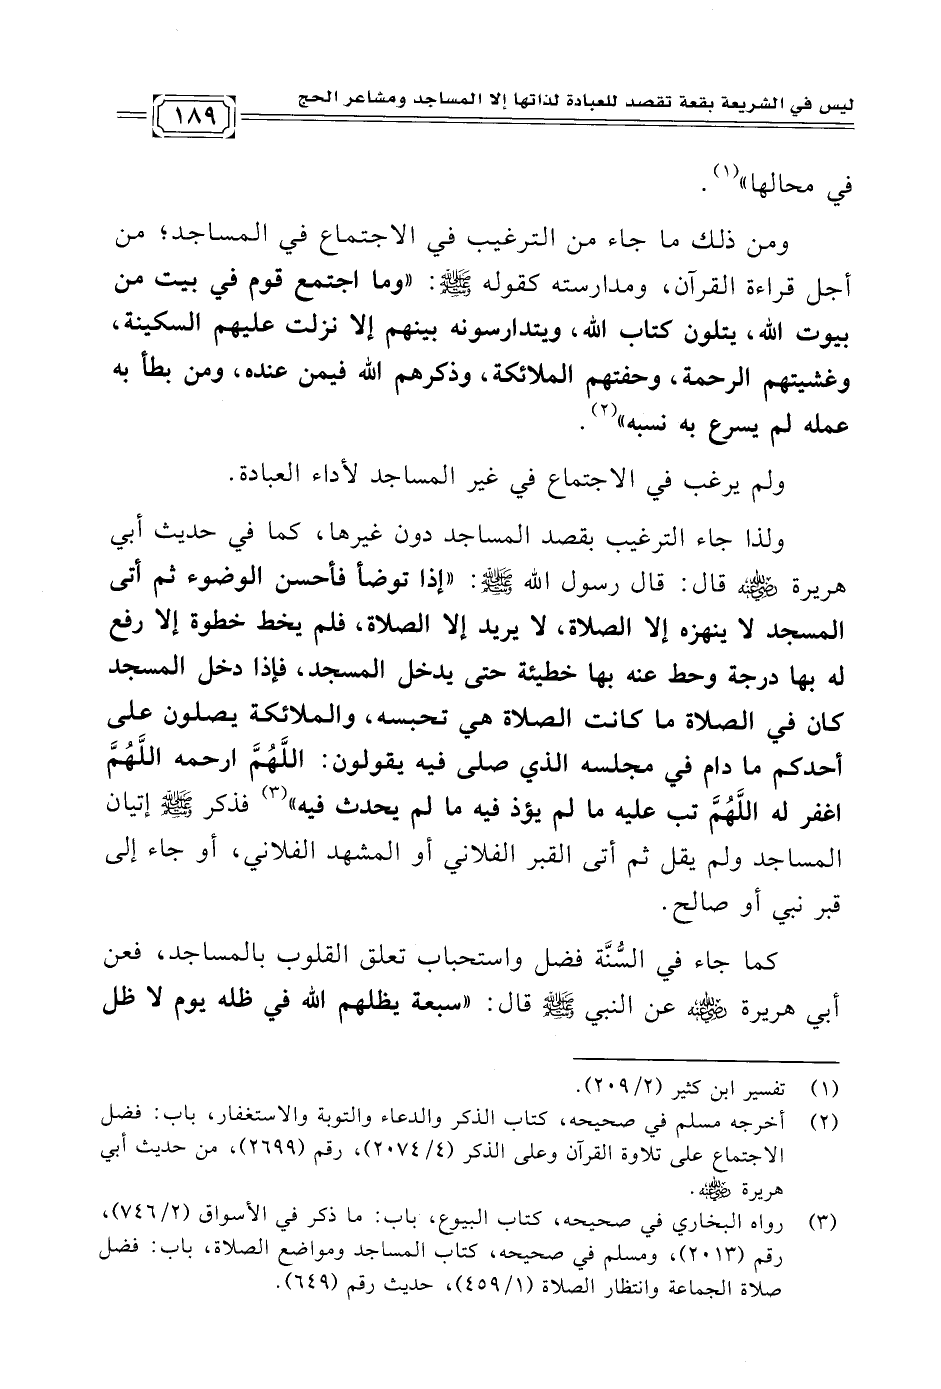 ليس في الشريعة بقعة تقصد للعبادة لذاتها إلا المساجد ومشاعر الحج
١٨٩
في محالها»(١).
ومن ذلك ما جاء من الترغيب في الاجتماع في المساجد؛ من
أجل قراءة القرآن، ومدارسته كقوله ﷺ: «وما اجتمع قوم في بيت من
بيوت الله، يتلون كتاب الله، ويتدارسونه بينهم إلا نزلت عليهم السكينة،
وغشيتهم الرحمة، وحفتهم الملائكة، وذكرهم الله فيمن عنده، ومن بطأ به
عمله لم يسرع به نسبه»(٢).
ولم يرغب في الاجتماع في غير المساجد لأداء العبادة.
ولذا جاء الترغيب بقصد المساجد دون غيرها، كما في حديث أبي
هريرة رضي الله عنه قال: قال رسول الله ﷺ: «إذا توضأ فأحسن الوضوء ثم أتى
المسجد لا ينهزه إلا الصلاة، لا يريد إلا الصلاة، فلم يخط خطوة إلا رفع
له بها درجة وحط عنه بها خطيئة حتى يدخل المسجد، فإذا دخل المسجد
كان في الصلاة ما كانت الصلاة هي تحبسه، والملائكة يصلون على
أحدكم ما دام في مجلسه الذي صلى فيه يقولون: اللَّهُمَّ ارحمه اللَّهُمَّ
اغفر له اللَّهُمَّ تب عليه ما لم يؤذ فيه ما لم يحدث فيه»(٣) فذكر ﷺ إتيان
المساجد ولم يقل ثم أتى القبر الفلاني أو المشهد الفلاني، أو جاء إلى
قبر نبي أو صالح.
كما جاء في السُّنَّة فضل واستحباب تعلق القلوب بالمساجد، فعن
أبي هريرة رضي الله عنه عن النبي ﷺ قال: «سبعة يظلهم الله في ظله يوم لا ظل
(١) تفسير ابن كثير (٢/ ٢٠٩).
(٢) أخرجه مسلم في صحيحه، كتاب الذكر والدعاء والتوبة والاستغفار، باب: فضل
الاجتماع على تلاوة القرآن وعلى الذكر (٤/ ٢٠٧٤)، رقم (٢٦٩٩)، من حديث أبي
هريرة رضي الله عنه.
(٣) رواه البخاري في صحيحه، كتاب البيوع، باب: ما ذكر في الأسواق (٢/ ٧٤٦)،
رقم (٢٠١٣)، ومسلم في صحيحه، كتاب المساجد ومواضع الصلاة، باب: فضل
صلاة الجماعة وانتظار الصلاة (١/ ٤٥٩)، حديث رقم (٦٤٩).